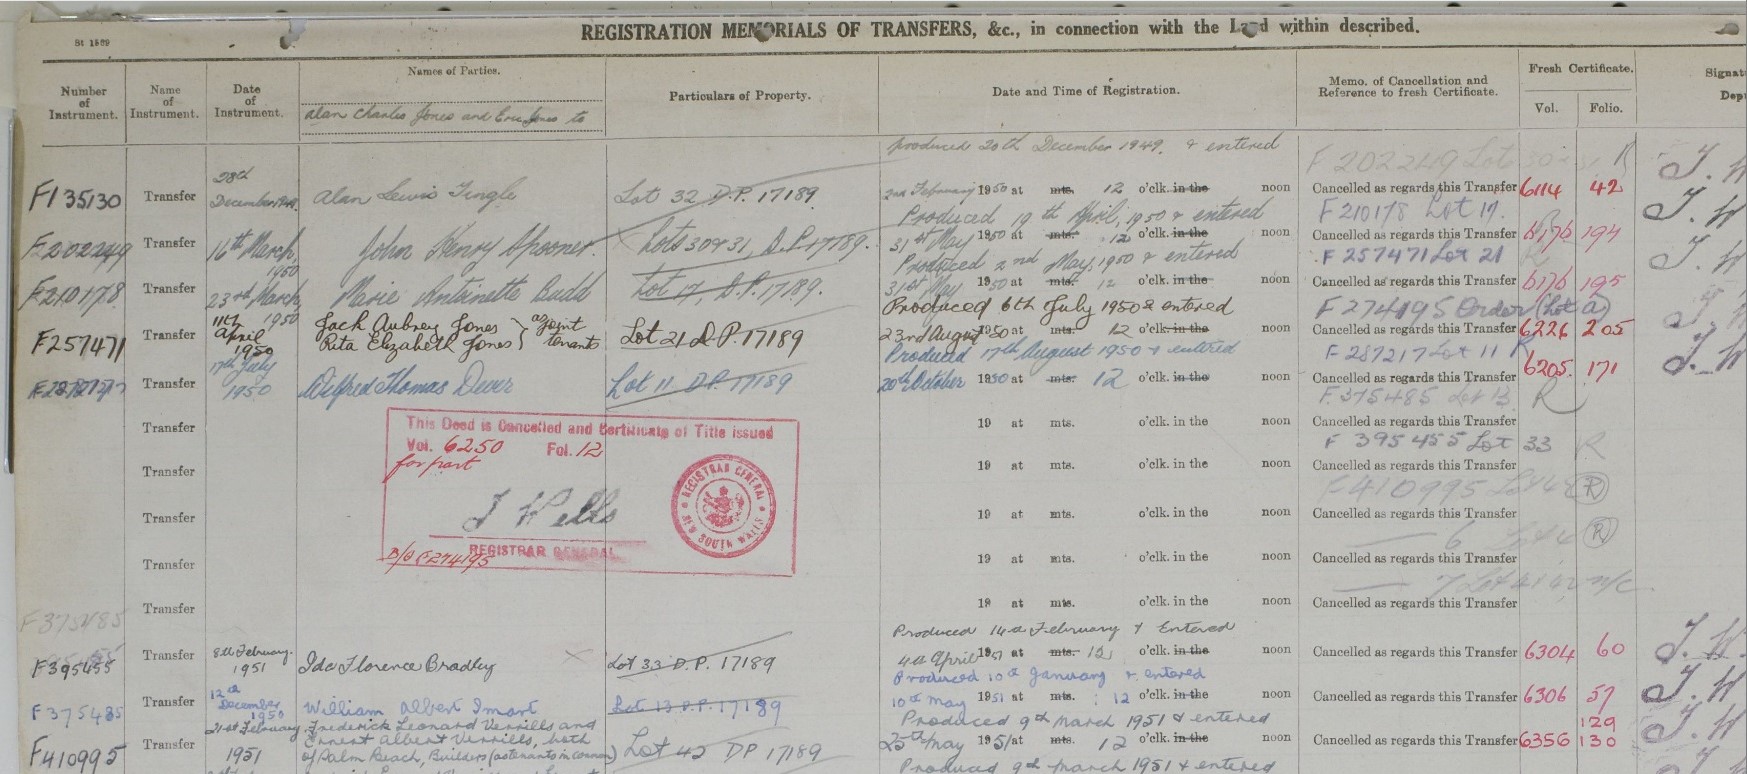 REGISTRATION MEMORIALS OF TRANSFERS, &c., in connection with the Land within described.
St 1559
Number of Instrument.
Name of Instrument.
Date of Instrument.
Names of Parties.
Alan Charles Jones and Eric Jones to
Particulars of Property.
Date and Time of Registration.
Memo. of Cancellation and Reference to fresh Certificate.
Fresh Certificate.
Vol. Folio.
Signat
Dep
Produced 20th December 1949. & entered
F 202249 Lot 30 31 R
F135130 Transfer 28th December Alan Lewis Tingle Lot 32 D.P. 17189. 2nd February 1950 at mts. 12 o'clk. in the noon Cancelled as regards this Transfer 6114 42 J. W
Produced 19th April, 1950 & entered
F 210178 Lot 17.
F202249 Transfer 16th March, 1950 John Henry Spooner Lots 30 & 31, D.P. 17189. 31st May 1950 at mts. 12 o'clk. in the noon Cancelled as regards this Transfer 6176 194 J. W
Produced 2nd May, 1950 & entered
F 257471 Lot 21
F210178 Transfer 23rd March, 1950 Marie Antoinette Budd Lot 17, D.P. 17189. 31st May 1950 at mts. 12 o'clk. in the noon Cancelled as regards this Transfer 6176 195 J. W
Produced 6th July 1950 & entered
F 274195 Order (Lot a)
F257471 Transfer 11th April 1950 Jack Aubrey Jones Rita Elizabeth Jones } as joint tenants Lot 21 D.P. 17189 23rd August 1950 mts. 12 o'clk. in the noon Cancelled as regards this Transfer 6226 205 J. W
Produced 17th August 1950 & entered
F 287217 Lot 11 R
F287217 Transfer 17th July 1950 Wilfred Thomas Dever Lot 11 D.P. 17189 20th October 1950 at mts. 12 o'clk. in the noon Cancelled as regards this Transfer 6205. 171 J. W
F 375485 Lot 13 R
Transfer 19 at mts. o'clk. in the noon Cancelled as regards this Transfer
This Deed is Cancelled and Certificate of Title issued
Vol. 6250 Fol. 12
for part
J Wells
REGISTRAR GENERAL
B/O F274195
REGISTRAR GENERAL
NEW SOUTH WALES
F 395455 Lot 33 R
Transfer 19 at mts. o'clk. in the noon Cancelled as regards this Transfer
F410995 Lot 42 R
Transfer 19 at mts. o'clk. in the noon Cancelled as regards this Transfer
6 Lot R
Transfer 19 at mts. o'clk. in the noon Cancelled as regards this Transfer
7 Lot
F375485 Transfer 19 at mts. o'clk. in the noon Cancelled as regards this Transfer
Produced 14th February & Entered
F395455 Transfer 8th February. 1951 Ida Florence Bradley Lot 33 D.P. 17189 4th April 1951 at mts. 12 o'clk. in the noon Cancelled as regards this Transfer 6304 60 J. W.
Produced 10th January & entered
F375485 Transfer 12th December 1950 William Albert Smart Lot 13 D.P. 17189 10th May 1951 at mts. 12 o'clk. in the noon Cancelled as regards this Transfer 6306 57 J. W
Produced 9th March 1951 & entered
F410995 Transfer 21st February 1951 Frederick Leonard Verrills and Ernest Albert Verrills, both of Palm Beach, Builders (as tenants in common) Lot 42 DP 17189 25th May 1951 at mts. 12 o'clk. in the noon Cancelled as regards this Transfer 6356 129 130 J. W
Produced 9th March 1951 & entered